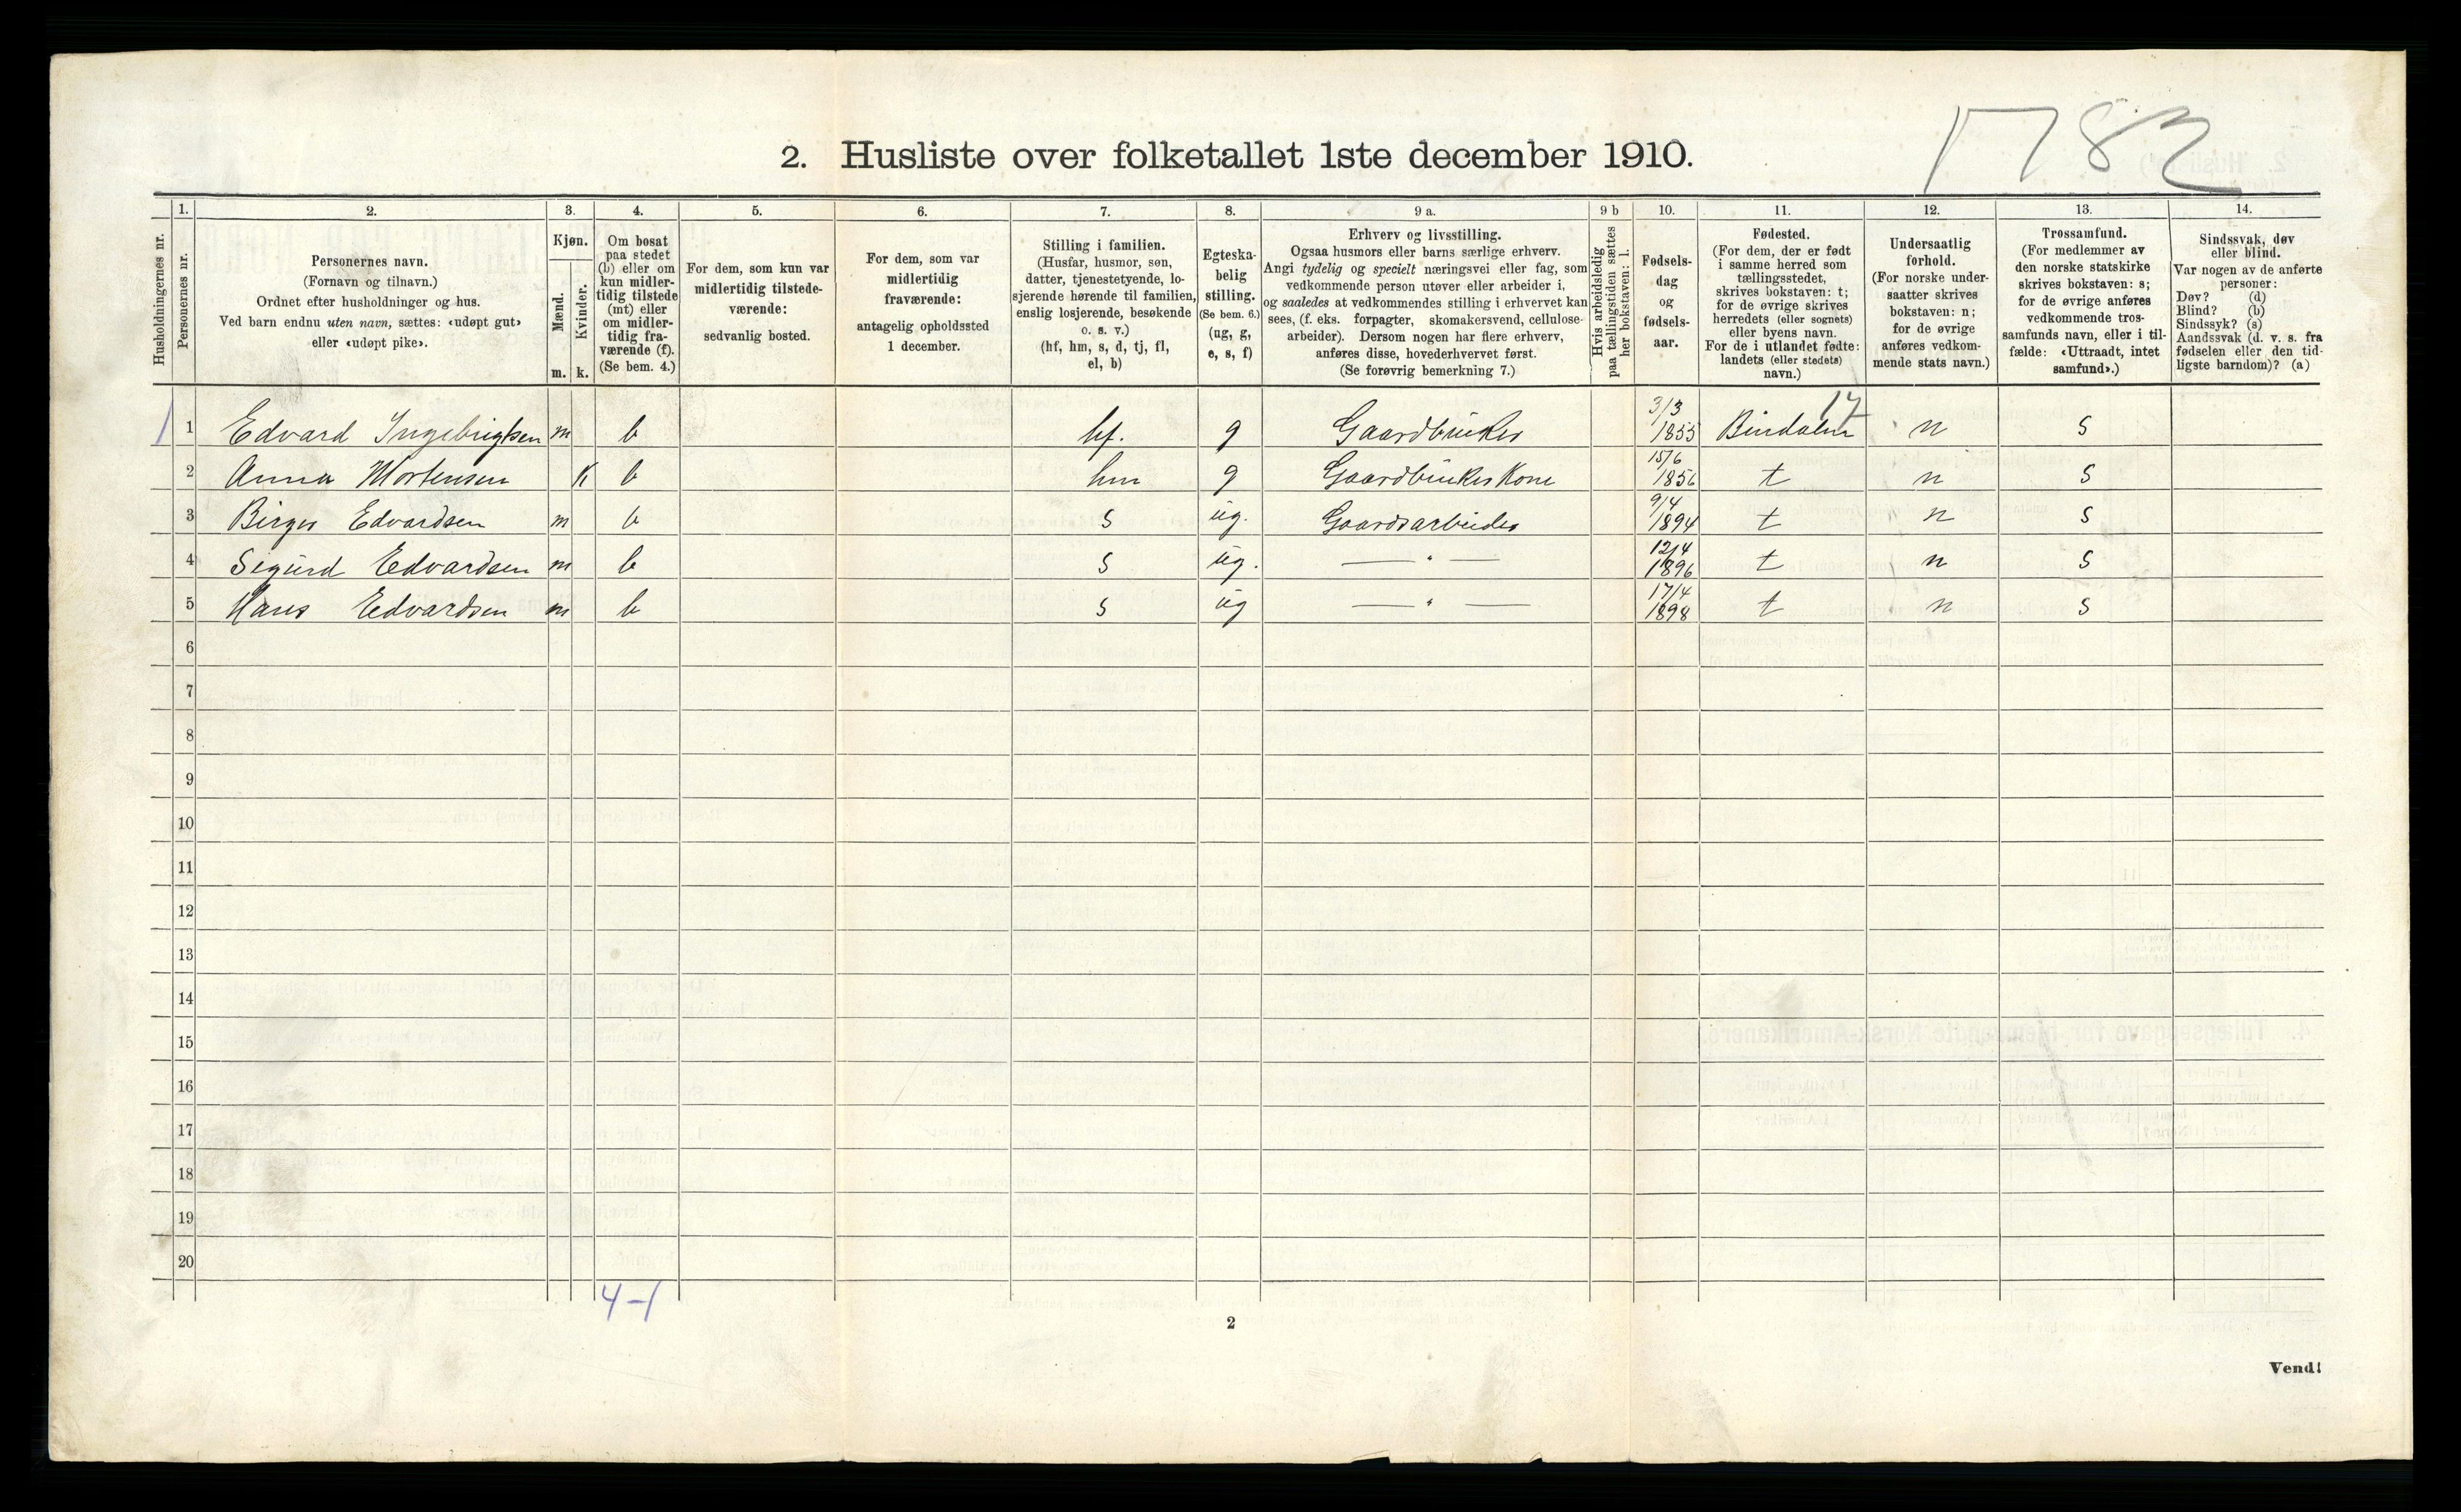 1782
2. Husliste over folketallet 1ste december 1910.
Husholdningernes nr.
1.
Personernes nr.
2.
Personernes navn.
(Fornavn og tilnavn.)
Ordnet efter husholdninger og hus.
Ved barn endnu uten navn, sættes: «udøpt gut»
eller «udøpt pike».
3.
Kjøn.
Mænd.
Kvinder.
m. k.
4.
Om bosat
paa stedet
(b) eller om
kun midler-
tidig tilstede
(mt) eller
om midler-
tidig fra-
værende (f).
(Se bem. 4.)
5.
For dem, som kun var
midlertidig tilstede-
værende:
sedvanlig bosted.
6.
For dem, som var
midlertidig
fraværende:
antagelig opholdssted
1 december.
7.
Stilling i familien.
(Husfar, husmor, søn,
datter, tjenestetyende, lo-
sjerende hørende til familien,
enslig losjerende, besøkende
o. s. v.)
(hf, hm, s, d, tj, fl,
el, b)
8.
Egteska-
belig
stilling.
(Se bem. 6.)
(ug, g,
e, s, f)
9 a.
Erhverv og livsstilling.
Ogsaa husmors eller barns særlige erhverv.
Angi tydelig og specielt næringsvei eller fag, som
vedkommende person utøver eller arbeider i,
og saaledes at vedkommendes stilling i erhvervet kan
sees, (f. eks. forpagter, skomakersvend, cellulose-
arbeider). Dersom nogen har flere erhverv,
anføres disse, hovederhvervet først.
(Se forøvrig bemerkning 7.)
9 b
Hvis arbeidsledig
paa tællingstiden sættes
her bokstaven: l.
10.
Fødsels-
dag
og
fødsels-
aar.
11.
Fødested.
(For dem, der er født
i samme herred som
tællingsstedet,
skrives bokstaven: t;
for de øvrige skrives
herredets (eller sognets)
eller byens navn.
For de i utlandet fødte:
landets (eller stedets)
navn.)
12.
Undersaatlig
forhold.
(For norske under-
saatter skrives
bokstaven: n;
for de øvrige
anføres vedkom-
mende stats navn.)
13.
Trossamfund.
(For medlemmer av
den norske statskirke
skrives bokstaven: s;
for de øvrige anføres
vedkommende tros-
samfunds navn, eller i til-
fælde: «Uttraadt, intet
samfund».)
14.
Sindssvak, døv
eller blind.
Var nogen av de anførte
personer:
Døv? (d)
Blind? (b)
Sindssyk? (s)
Aandssvak (d. v. s. fra
fødselen eller den tid-
ligste barndom)? (a)
1 1 Edvard Ingebrigtsen m b hf. g Gaardbruker 3/3 1855 Bindalen 17 n s
2 Anna Mortensen k b hm g Gaardbrukerskone 15/6 1856 t n s
3 Birger Edvardsen m b s ug. Gaardsarbeider 9/4 1894 t n s
4 Sigurd Edvardsen m b s ug. — " — 12/4 1896 t n s
5 Hans Edvardsen m b s ug — " — 17/4 1898 t n s
6
7
8
9
10
11
12
13
14
15
16
17
18
19
20
4-1
2
Vend!